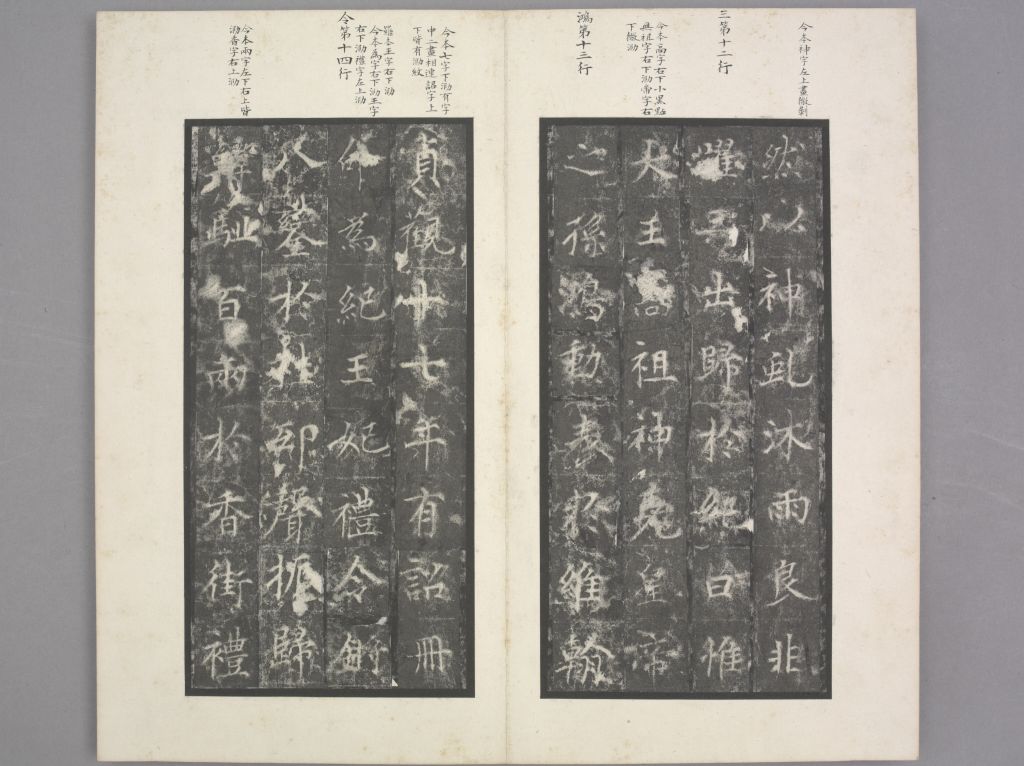 今本神字左上畫微剝
三第十二行
今本高字右下小黑點
與祖字右下泐帝字右
下微泐
鴻第十三行
然以神虬沐雨良非
出歸於曰惟
大王高祖神堯皇帝
之孫鴻勳表於維翰
今本七字下泐有字
中二畫相連詔字上
下皆有泐紋
令第十四行
羅本王字右下泐
今本為字右下泐王字
右下泐禮字左上泐
今本兩字左下右上皆
泐香字右上泐
貞觀十七年有詔冊
命為紀王妃禮令
八鑾於邸聲振歸
馳百兩於香街禮